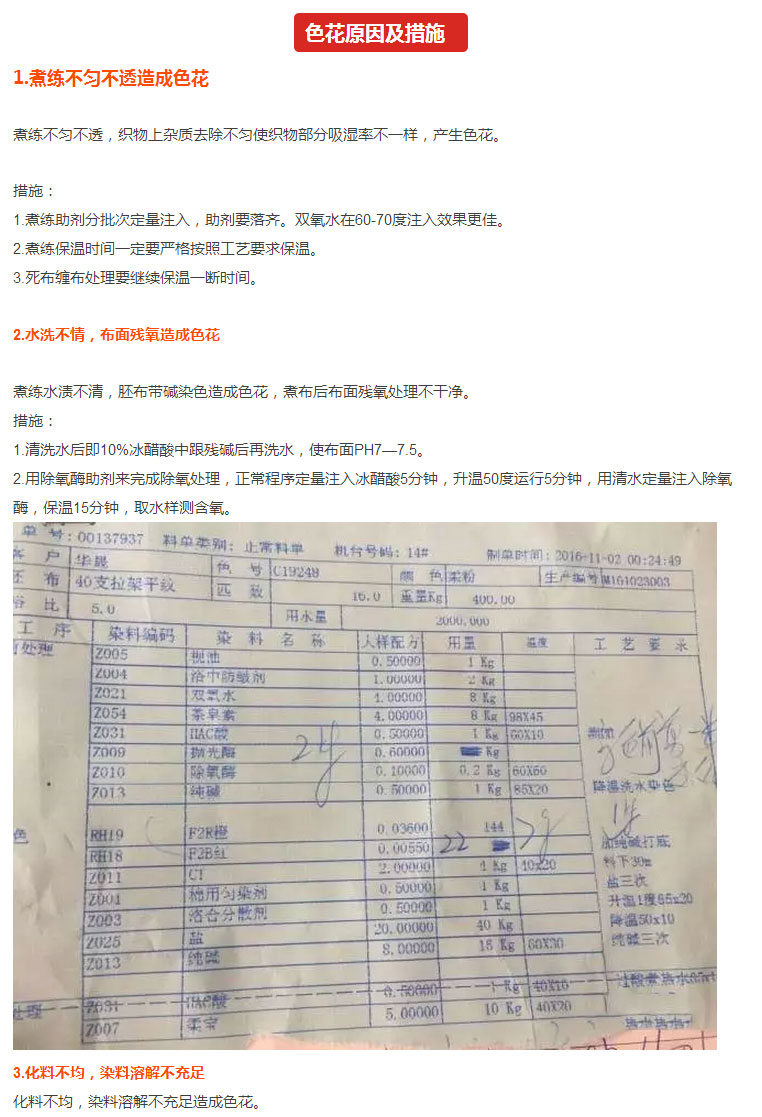 色花原因及措施
1.煮练不匀不透造成色花
煮练不匀不透，织物上杂质去除不匀使织物部分吸湿率不一样，产生色花。
措施：
1.煮练助剂分批次定量注入，助剂要落齐。双氧水在60-70度注入效果更佳。
2.煮练保温时间一定要严格按照工艺要求保温。
3.死布缠布处理要继续保温一断时间。
2.水洗不情，布面残氧造成色花
煮练水渍不清，胚布带碱染色造成色花，煮布后布面残氧处理不干净。
措施：
1.清洗水后即10%冰醋酸中跟残碱后再洗水，使布面PH7—7.5。
2.用除氧酶助剂来完成除氧处理，正常程序定量注入冰醋酸5分钟，升温50度运行5分钟，用清水定量注入除氧
酶，保温15分钟，取水样测含氧。
单 号：00137937 料单类别：正常料单 机台号码：14# 制单时间：2016-11-02 00:24:49
客 户 华晟 色 号 C19248 颜 色 柔粉 生产编号 M161023003
坯 布 40支拉架平纹 匹 数 16.0 重量Kg 400.00
浴 比 5.0 用水量 2000.000
工 序 染料编码 染 料 名 称 大样配方 用量 温度 工 艺 要 求
前处理 Z005 枧油 0.50000 1 Kg
Z004 浴中防皱剂 1.00000 2 Kg
Z021 双氧水 4.00000 8 Kg
Z054 茶皂素 4.00000 8 Kg 98X45
Z031 HAC酸 0.50000 1 Kg 60X10
Z009 抛光酶 0.60000 Kg
Z010 除氧酶 0.10000 0.2 Kg 60X60
Z013 纯碱 0.50000 1 Kg 85X20 降温洗水染色
色 RH19 F2R橙 0.03600 144
RH18 F2B红 0.00550 22 加纯碱打底
Z011 CT 2.00000 4 Kg 40x20 料下30m
Z001 棉用匀染剂 0.50000 1 Kg 盐三次
Z003 洛合分散剂 0.50000 1 Kg 升温1度65x20
Z025 盐 20.00000 40 Kg 降温50x10
Z013 纯碱 8.00000 16 Kg 60X30 纯碱三次
处理 Z031 HAC酸 0.50000 1 Kg 40X10
Z007 柔宝 5.00000 10 Kg 40X20
3.化料不均，染料溶解不充足
化料不均，染料溶解不充足造成色花。